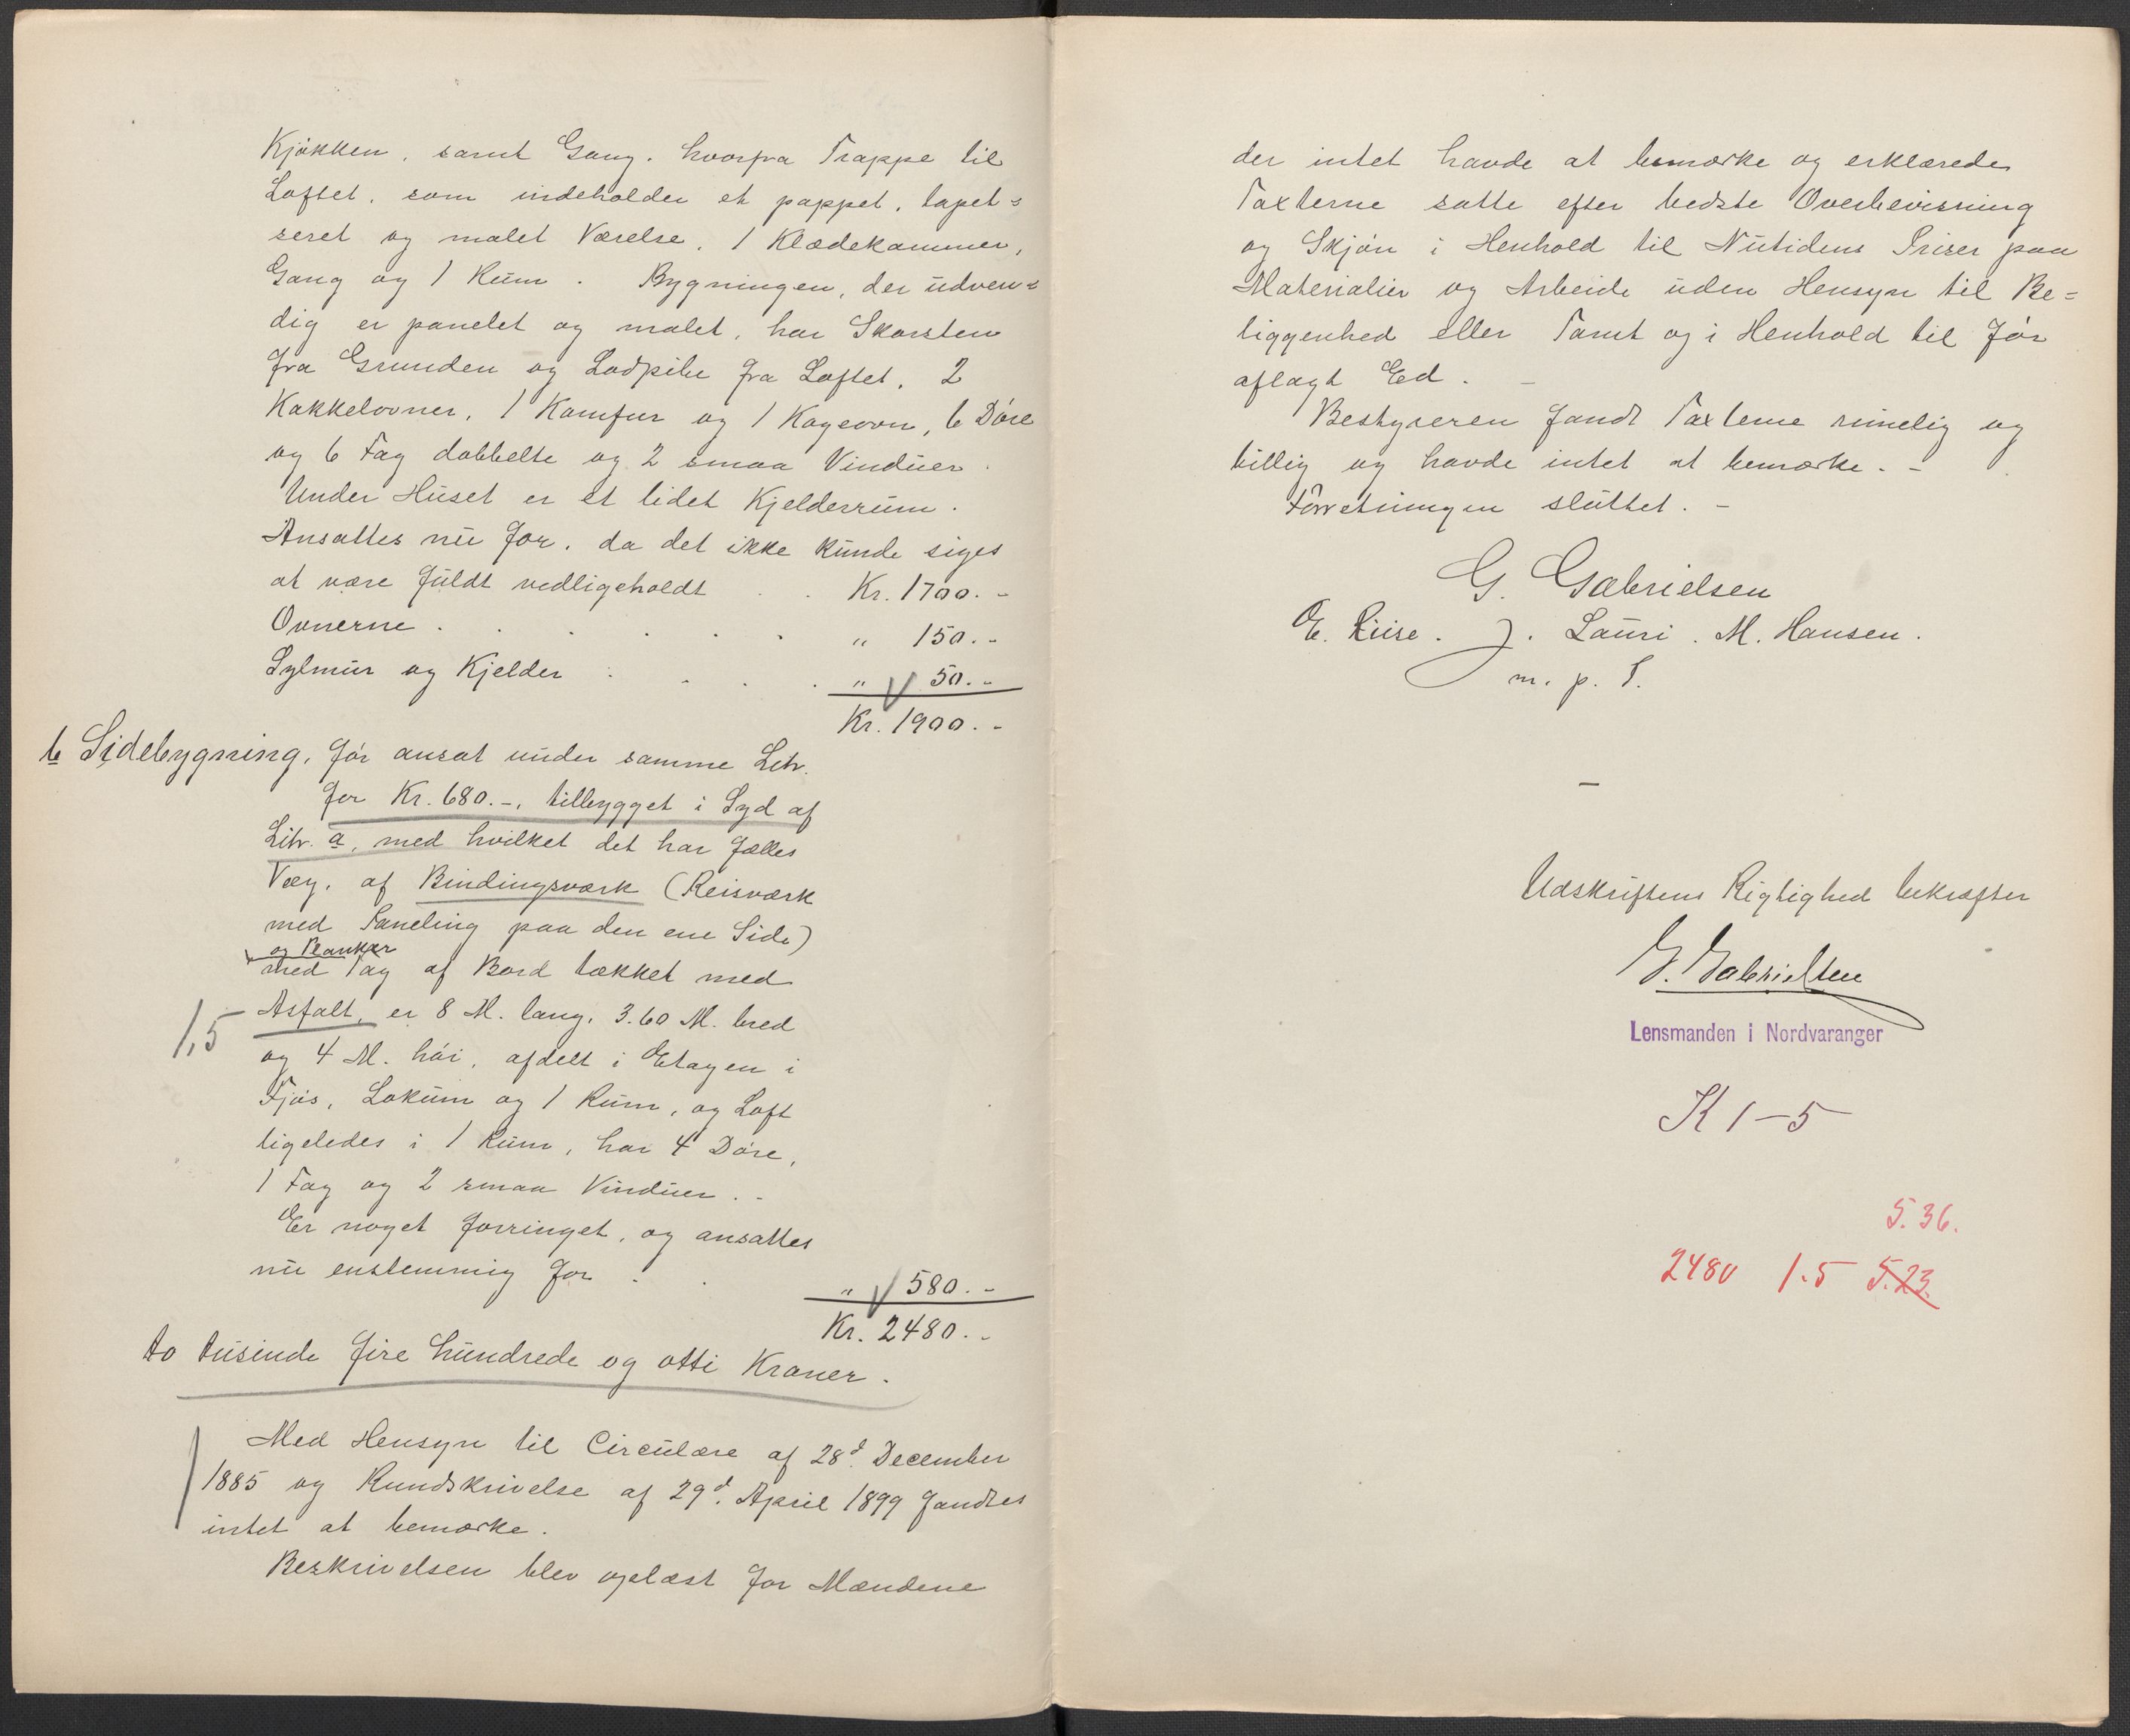 Kjøkken, samt Gang, hvorfra Trappe til
Loftet, som indeholder et pappet, tapet=
seret og malet Værelse, 1 Klædekammer,
Gang og 1 Rum. Bygningen, der udven=
dig er panelet og malet, har Skorsten
fra Grunden og Lodpibe fra Loftet, 2
Kakkelovner, 1 Komfur og 1 Kogeovn, 6 Døre
og 6 Fag dobbelte og 2 smaa Vinduer.
Under Huset er et lidet Kjelderrum.
Ansattes nu for, da det ikke kunde siges
at være fuldt vedligeholdt . . Kr. 1700.-
Ovnerne . . . . . . " 150.-
Sylmur og Kjelder . . . . " 50.-
Kr. 1900.-
b Sidebygning, før ansat under samme Litr.
for Kr. 680.-, tilbygget i Syd af
Litr. a, med hvilket det har fælles
Væg, af Bindingsværk (Reisværk
med Paneling paa den ene Side)
og Plankær
med Tag af Bord tækket med
1,5 Asfalt, er 8 M. lang, 3.60 M. bred
og 4 M. høi, afdelt i Etagen i
Fjøs, Lokum og 1 Rum, og Loft
ligeledes i 1 Rum, har 4 Døre,
1 Fag og 2 smaa Vinduer. -
Er noget forringet, og ansattes
nu enstemmig for . . " 580.-
Kr. 2480.-
to tusinde fire hundrede og otti Kroner.
Med Hensyn til Circulære af 28d. December
1885 og Rundskrivelse af 29d. April 1899 fandtes
intet at bemærke.
Beskrivelsen blev oplæst for Mændene
der intet havde at bemærke og erklærede
Taxterne satte efter bedste Overbevisning
og Skjøn i Henhold til Nutidens Priser paa
Materialier og Arbeide uden Hensyn til Be=
liggenhed eller Tomt og i Henhold til før
aflagt Ed. -
Bestyreren fandt Taxterne rimelig og
billig og havde intet at bemærke. -
Forretningen sluttet. -
G. Gabrielsen
E. Riise. J. Lauri. M. Hansen.
m. p. P.
-
Udskriftens Rigtighed bekræfter
G. Gabrielsen
Lensmanden i Nordvaranger
K 1-5
5.36.
2480 1.5 5.23.